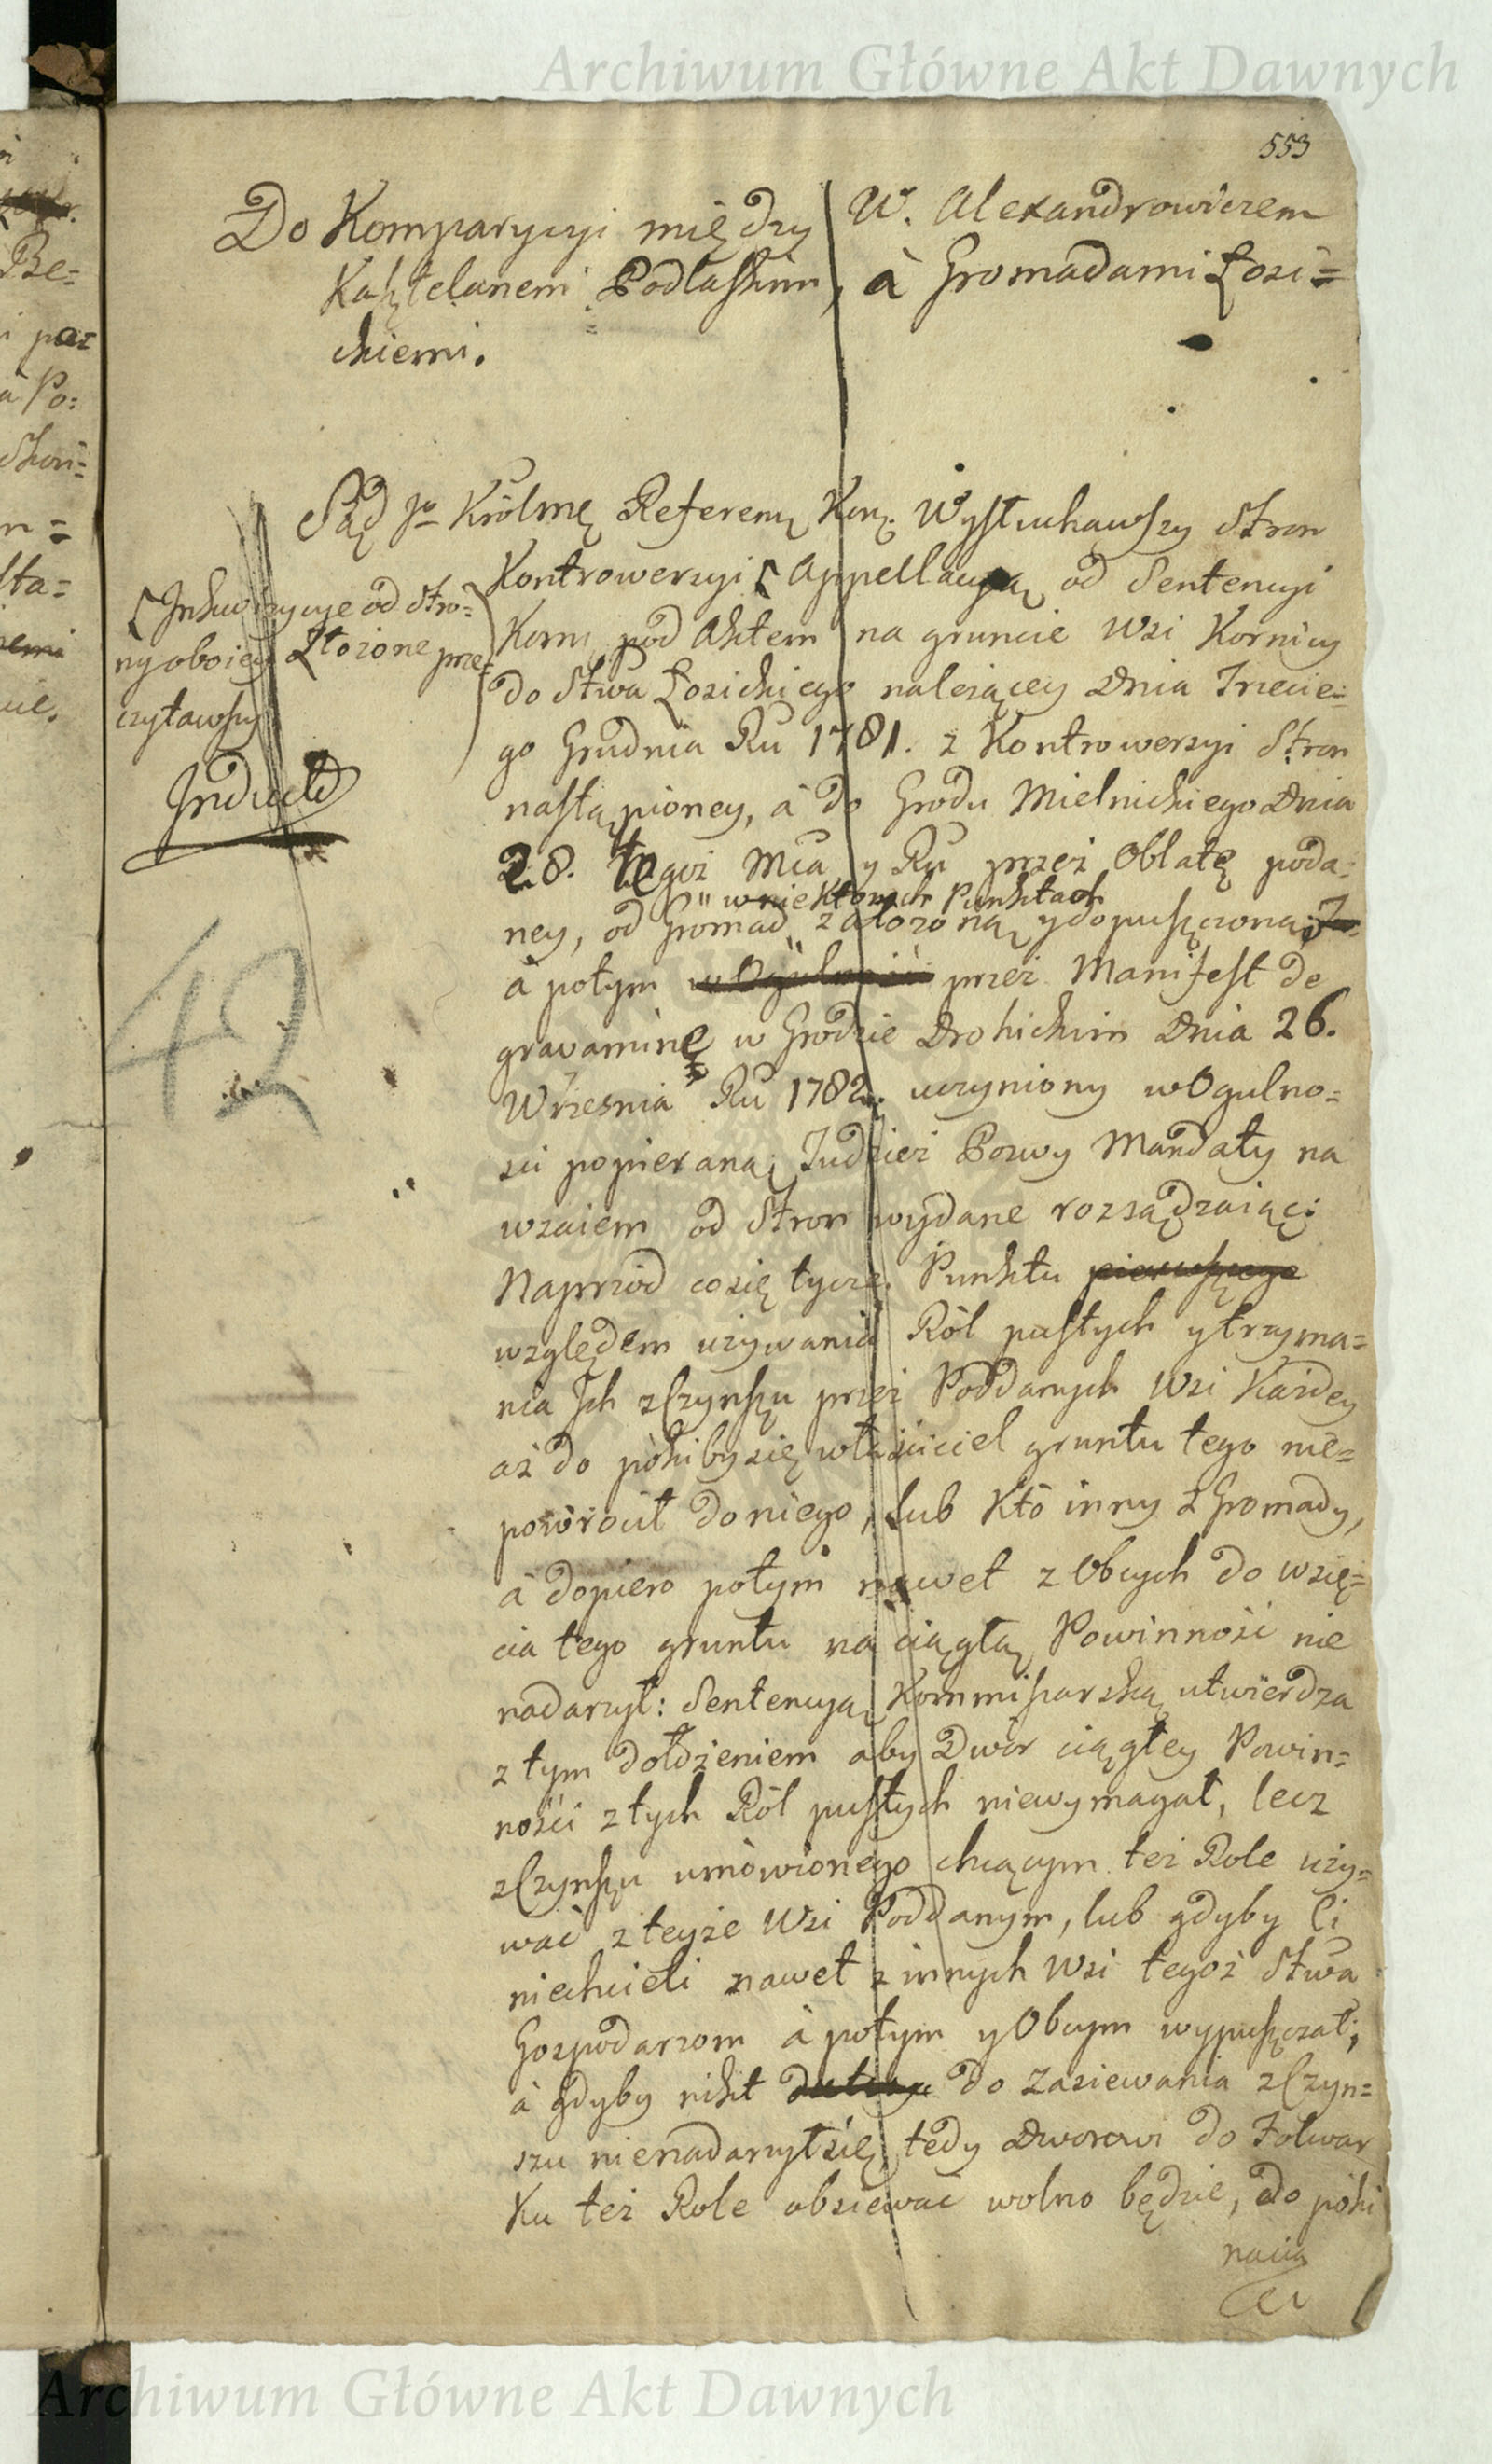 Archiwum Główne Akt Dawnych
553
Do Komparycyi między W. Alexandrowiczem
Kasztelanem Podlaskim, à Gromadami Łosi=
ckiemi.
Sąd Jo Królmę Referenz. Kor. Wysłuchawszy Stron
Kontrowersyi Appellacyą od Sentencyi
Kom pod Aktem na gruncie Wsi Kornicy
do Stwa Łosickiego należącey Dnia Trzecie=
go Grudnia Ru 1781. z Kontrowersyi Stron
nastąpioney, à do Grodu Mielnickiego Dnia
28. tegoż Mca y Ru przez Oblatę poda=
w niektorych Punktach
ney, od Gromad założoną y dopuszczoną;
à potym w Ogulności przez Manifest de
gravamine w Grodzie Drohickim Dnia 26.
Września Ru 1782. uczyniony w Ogulno=
sci popieraną; Tudzież Pozwy Mandaty na
wzaiem od Stron wydane rozsądzaiąc:
Naprzód co się tycze Punktu pierwszego
względem używania Ról pustych y trzyma=
nia Ich z Czynszu przez Poddanych Wsi Każdey
aż do póki by się właściciel gruntu tego nie=
powrócił do niego, lub Kto inny z Gromady,
à dopiero potym nawet z Obcych do wzię=
cia tego gruntu na ciągłą Powinność nie
nadarzył: Sentencyą Kommissarską utwierdza
z tym dołożeniem aby Dwór ciągłey Powin=
ności z tych Ról pustych niewymagał, lecz
z Czynszu umówionego chcącym też Role uży=
wać z teyże Wsi Poddanym, lub gdyby Ci
niechcieli nawet z innych Wsi tegoż Stwa
Gospodarzom à potym y Obcym wypuszczał;
à gdyby nikt do zasiewania z Czyn=
szu nienadarzył się, tedy Dworowi do Folwar
Ku też Role obsiewać wolno będzie, do póki
na cią
Inkwizycye od Stro=
ny oboiey Złożone prze=
czytawszy
Inducta
42
Be=
i
à Po:
Archiwum Główne Akt Dawnych